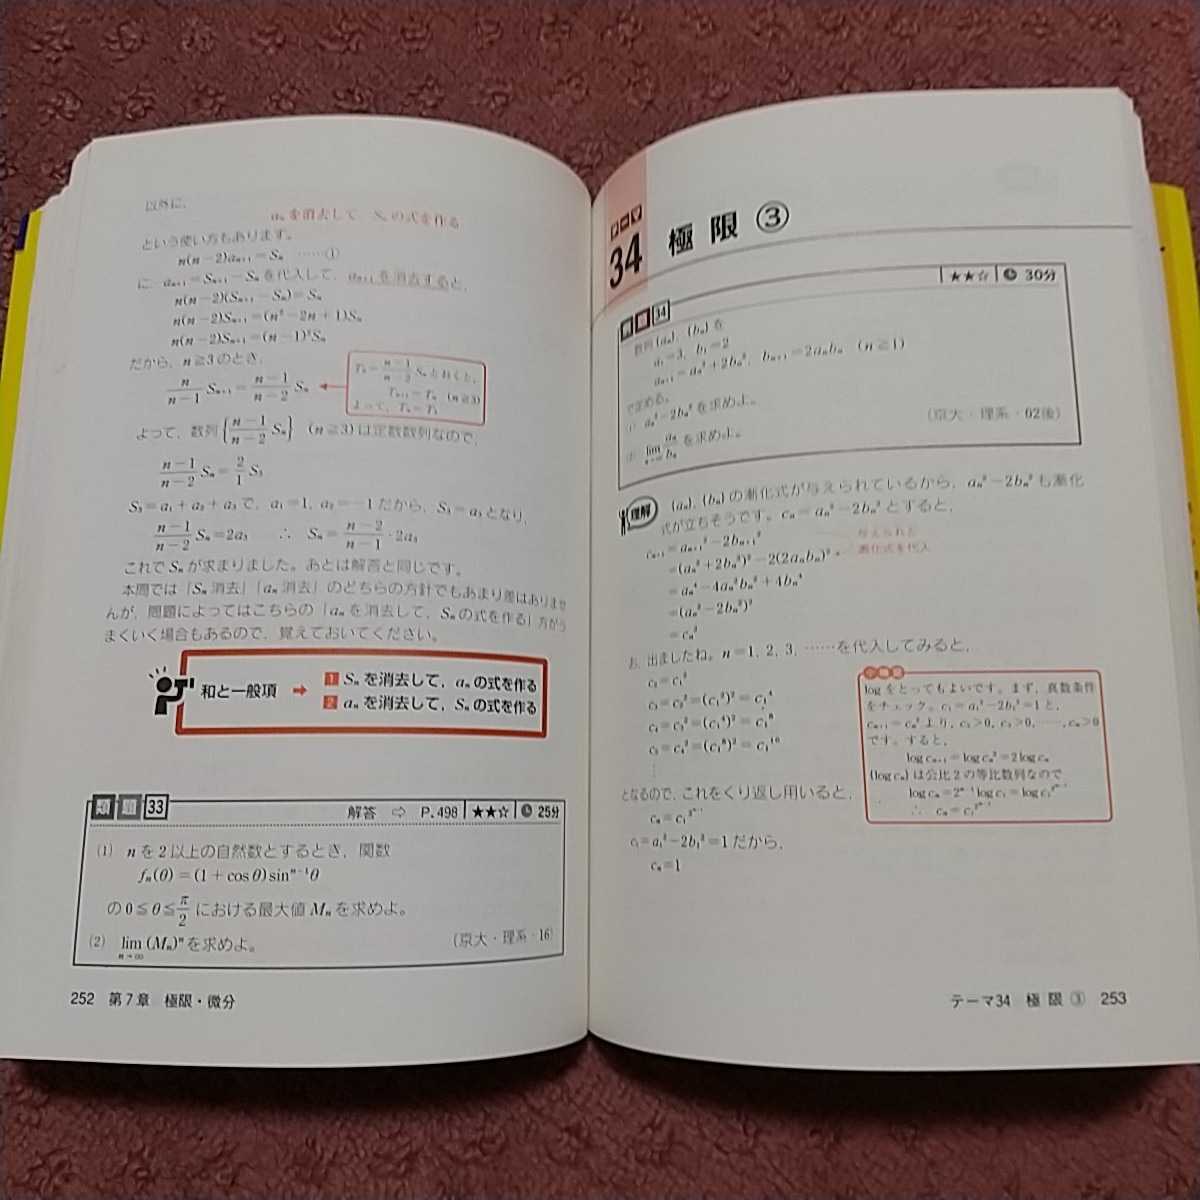 以外に,
aₙを消去して Sₙの式を作る
という使い方もあります。
n(n−2)aₙ₊₁=Sₙ ……①
に, aₙ₊₁=Sₙ₊₁−Sₙを代入して, aₙ₊₁を消去すると,
n(n−2)(Sₙ₊₁−Sₙ)=Sₙ
n(n−2)Sₙ₊₁=(n²−2n+1)Sₙ
n(n−2)Sₙ₊₁=(n−1)²Sₙ
だから, n≧3のとき,
n/(n−1) Sₙ₊₁=(n−1)/(n−2) Sₙ
Tₙ=(n−1)/(n−2) Sₙとおくと,
Tₙ₊₁=Tₙ (n≧3)
よって, Tₙ=T₃
よって, 数列{(n−1)/(n−2) Sₙ} (n≧3)は定数数列なので,
(n−1)/(n−2) Sₙ=2/1 S₃
S₃=a₁+a₂+a₃で, a₁=1, a₂=−1だから, S₃=a₃となり,
(n−1)/(n−2) Sₙ=2a₃ ∴ Sₙ=(n−2)/(n−1)・2a₃
これでSₙが求まりました。あとは解答と同じです。
本問では「Sₙ消去」「aₙ消去」のどちらの方針でもあまり差はありませ
んが, 問題によってはこちらの「aₙを消去して, Sₙの式を作る」方がう
まくいく場合もあるので, 覚えておいてください。
和と一般項 ➡ 1 Sₙを消去して, aₙの式を作る
2 aₙを消去して, Sₙの式を作る
類題 33 解答 ⇨ P.498 ★★☆ 25分
(1) nを2以上の自然数とするとき, 関数
fₙ(θ)=(1+cosθ)sinⁿ⁻¹θ
の0≦θ≦π/2における最大値Mₙを求めよ。
(2) lim n→∞ (Mₙ)ⁿを求めよ。 (京大・理系・16)
252 第7章 極限・微分
34 極限③
★★☆ 30分
例題 34
数列{aₙ}, {bₙ}を
a₁=3, b₁=2
aₙ₊₁=aₙ²+2bₙ², bₙ₊₁=2aₙbₙ (n≧1)
で定める。
(1) aₙ²−2bₙ²を求めよ。 (京大・理系・02後)
(2) lim n→∞ aₙ/bₙを求めよ。
理解 {aₙ}, {bₙ}の漸化式が与えられているから, aₙ²−2bₙ²も漸化
式が立ちそうです。cₙ=aₙ²−2bₙ²とすると,
cₙ₊₁=aₙ₊₁²−2bₙ₊₁²
=(aₙ²+2bₙ²)²−2(2aₙbₙ)²
与えられた
漸化式を代入
=aₙ⁴−4aₙ²bₙ²+4bₙ⁴
=(aₙ²−2bₙ²)²
=cₙ²
お, 出ましたね。n=1, 2, 3, ……を代入してみると,
c₂=c₁²
c₃=c₂²=(c₁²)²=c₁⁴
c₄=c₃²=(c₁⁴)²=c₁⁸
c₅=c₄²=(c₁⁸)²=c₁¹⁶
⋮
となるので, これをくり返し用いると,
cₙ=c₁^(2ⁿ⁻¹)
c₁=a₁²−2b₁²=1だから,
cₙ=1
logをとってもよいです。まず, 真数条件
をチェック。c₁=a₁²−2b₁²=1と,
cₙ₊₁=cₙ²より, c₂>0, c₃>0, ……, cₙ>0
です。すると,
log cₙ₊₁=log cₙ²=2log cₙ
{log cₙ}は公比2の等比数列なので,
log cₙ=2ⁿ⁻¹log c₁=log c₁^(2ⁿ⁻¹)
∴ cₙ=c₁^(2ⁿ⁻¹)
テーマ34 極限③ 253